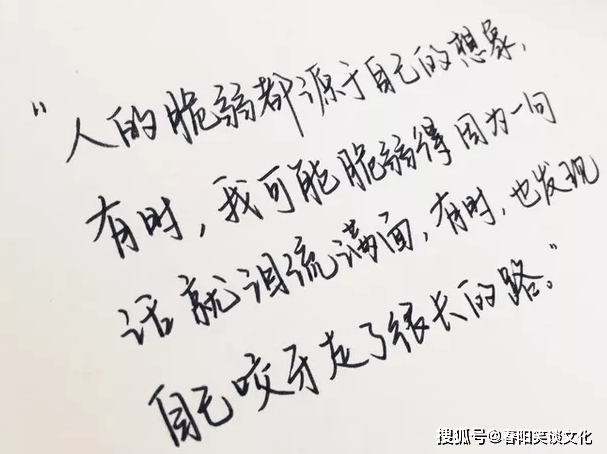 "人的脆弱都源于自己的想象，
有时，我可能脆弱得因为一句
话就泪流满面，有时，也发现
自己咬牙走了很长的路。"
搜狐号@春阳笑谈文化